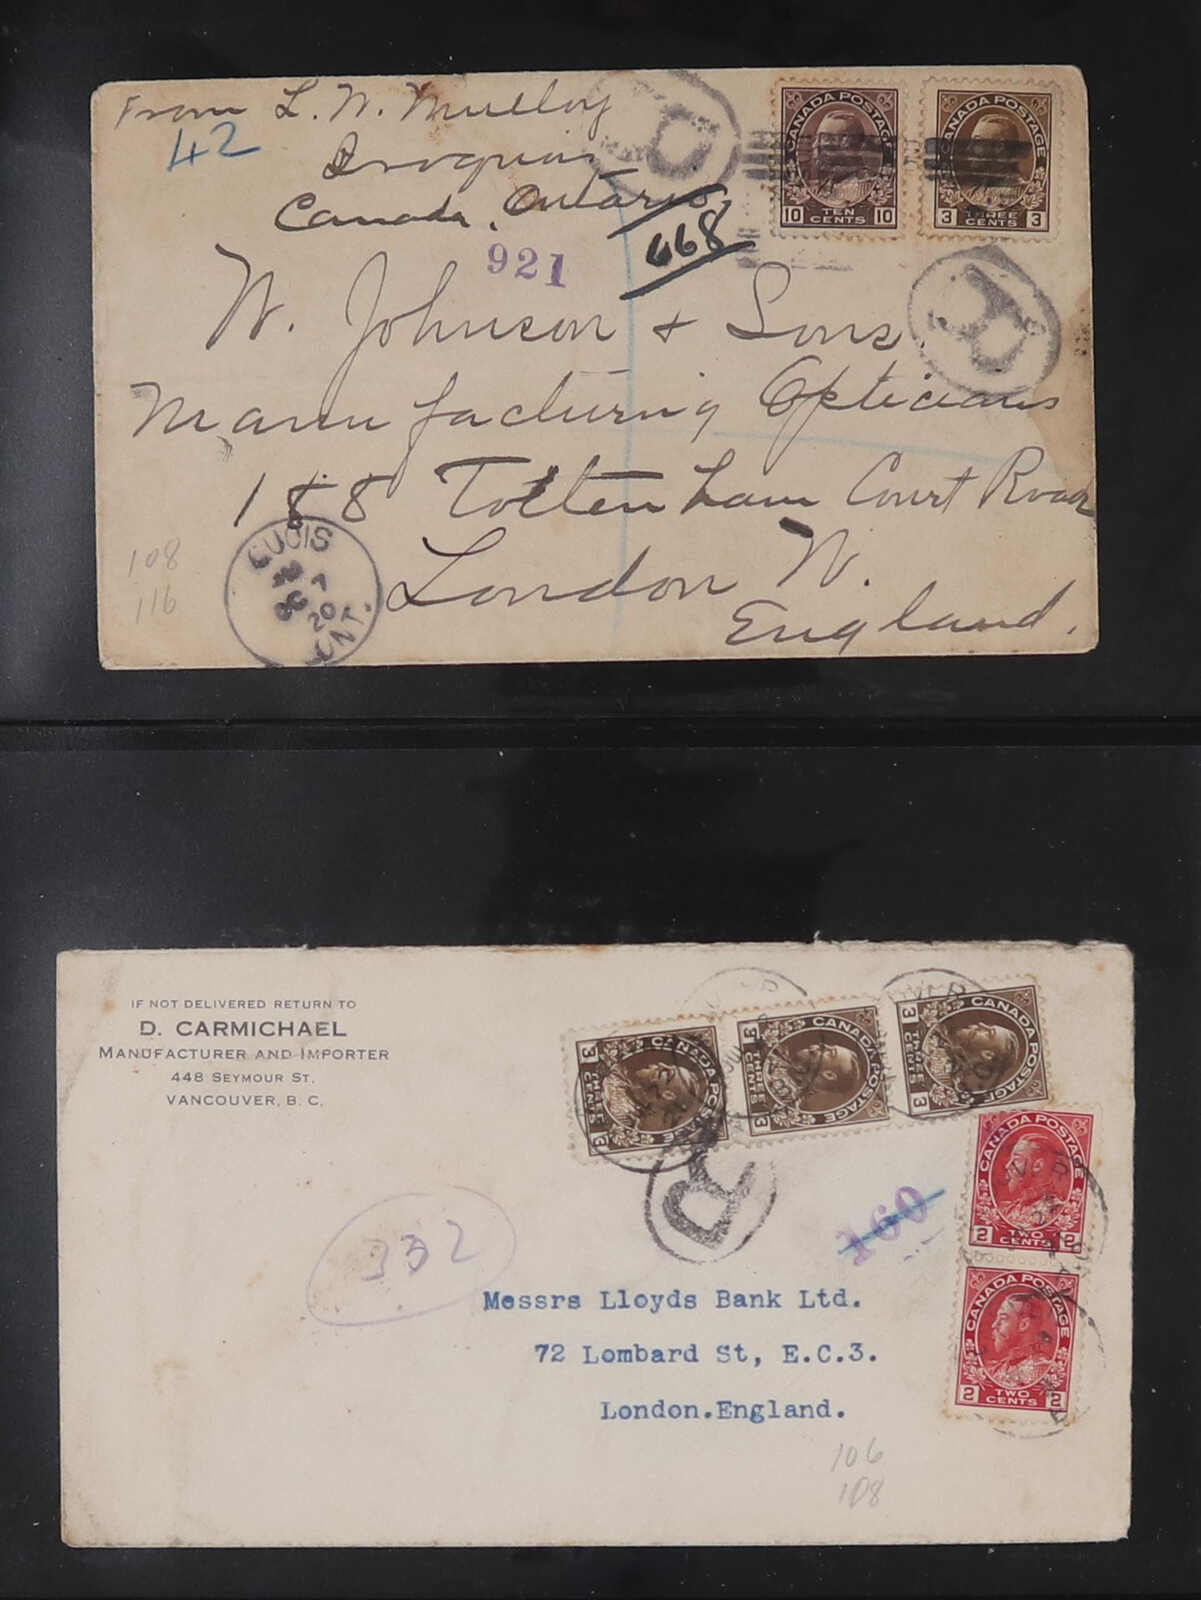 From L. W. Mulloy
42
Iroquois
Canada. Ontario.
668
921
R
CANADA POSTAGE
10 TEN CENTS 10
CANADA POSTAGE
3 THREE CENTS 3
R
W. Johnson & Sons.
Manufacturing Opticians
188 Tottenham Court Road
London W.
England.
108
116
7
20
ONT.
IF NOT DELIVERED RETURN TO
D. CARMICHAEL
MANUFACTURER AND IMPORTER
448 SEYMOUR ST.
VANCOUVER, B. C.
CANADA POSTAGE
3 THREE CENTS 3
CANADA POSTAGE
3 THREE CENTS 3
CANADA POSTAGE
3 THREE CENTS 3
R
CANADA POSTAGE
2 TWO CENTS 2
CANADA POSTAGE
2 TWO CENTS 2
160
332
Messrs Lloyds Bank Ltd.
72 Lombard St, E.C.3.
London.England.
106
108